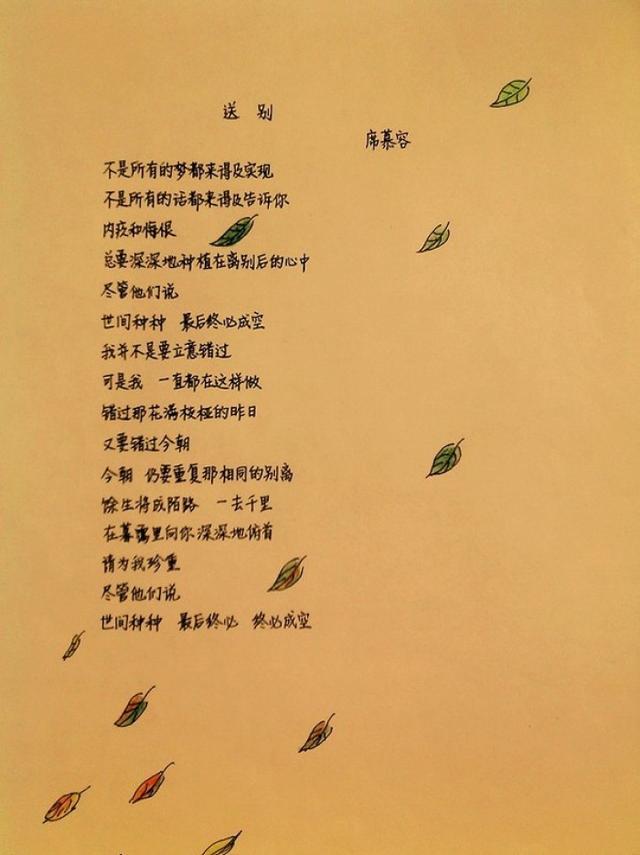 送别
席慕容
不是所有的梦都来得及实现
不是所有的话都来得及告诉你
内疚和悔恨
总要深深地种植在离别后的心中
尽管他们说
世间种种 最后终必成空
我并不是要立意错过
可是我 一直都在这样做
错过那花满枝桠的昨日
又要错过今朝
今朝 仍要重复那相同的别离
馀生将成陌路 一去千里
在暮霭里向你深深地俯首
请为我珍重
尽管他们说
世间种种 最后终必 终必成空